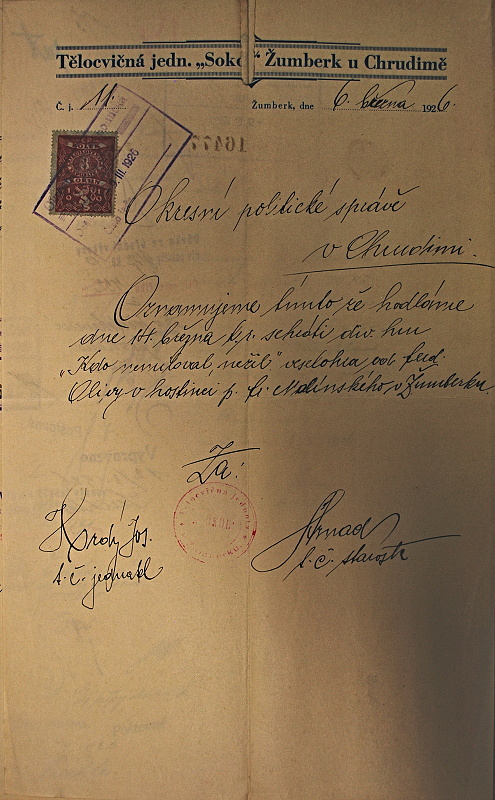 Tělocvičná jedn. „Sokol“ Žumberk u Chrudimě
Č. j. 11. Žumberk, dne 6. března 1926.
16477
III. 1926
Okresní politické správě
v Chrudimi.
Oznamujeme tímto, že hodláme
dne 14. března t.r. sehráti div. hru
„Kdo nemiloval, nežil“ veselohra od Ferd.
Olivy v hostinci p. Malinského v Žumberku.
Za:
Tělocvičná jednota
Tvrdý Jos.
t. č. jednatel
t. č. starosta